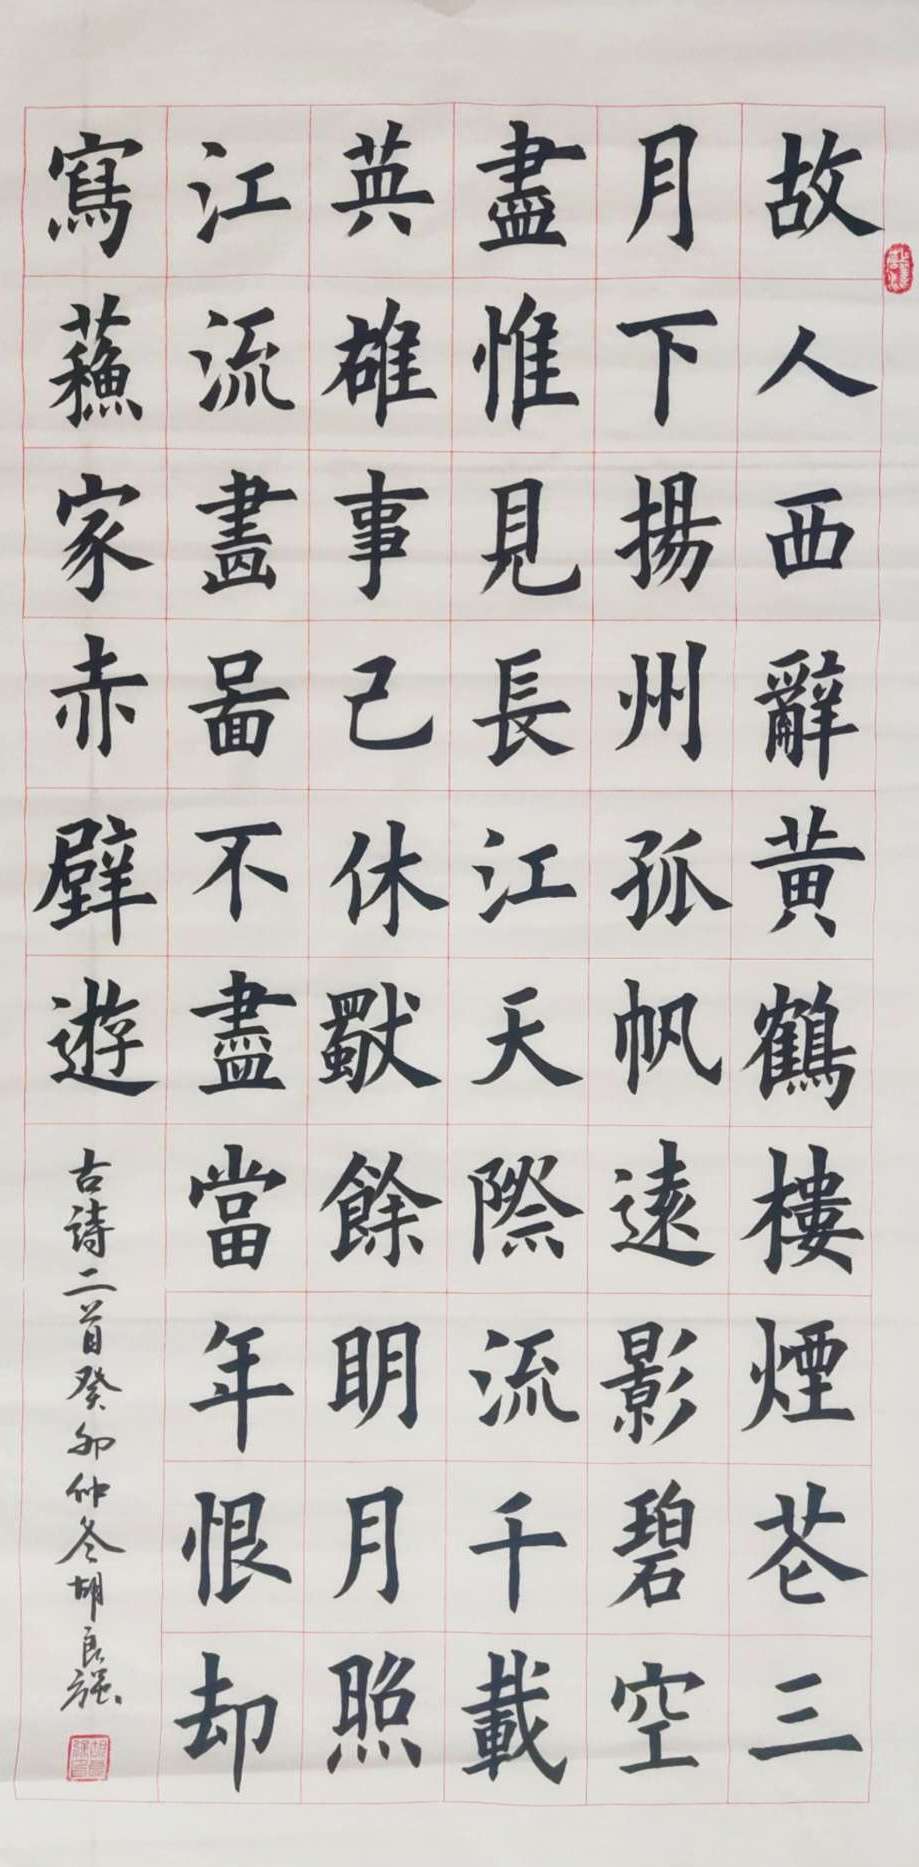 故人西辭黃鶴樓煙花三
月下揚州孤帆遠影碧空
盡惟見長江天際流千載
英雄事已休獨餘明月照
江流畫圖不盡當年恨却
寫蘓家赤壁遊
古诗二首癸卯仲冬胡良强